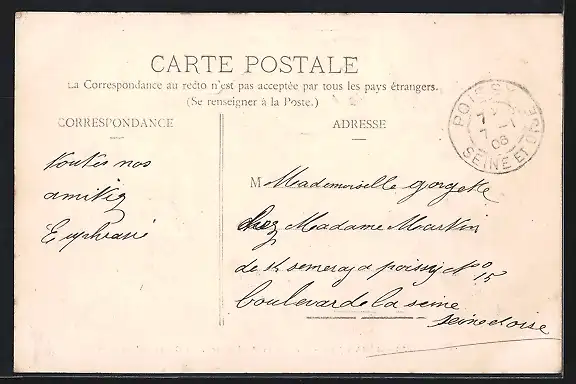 CARTE POSTALE
La Correspondance au recto n'est pas acceptée par tous les pays étrangers.
(Se renseigner à la Poste.)
CORRESPONDANCE
ADRESSE
toutes nos
amitiez
Euphrasie
M Mademoiselle gorgette
chez Madame Martin
de a poissy No 15
boulevar de la seine
seine et oise
POISSY
7 -1
08
SEINE ET OISE